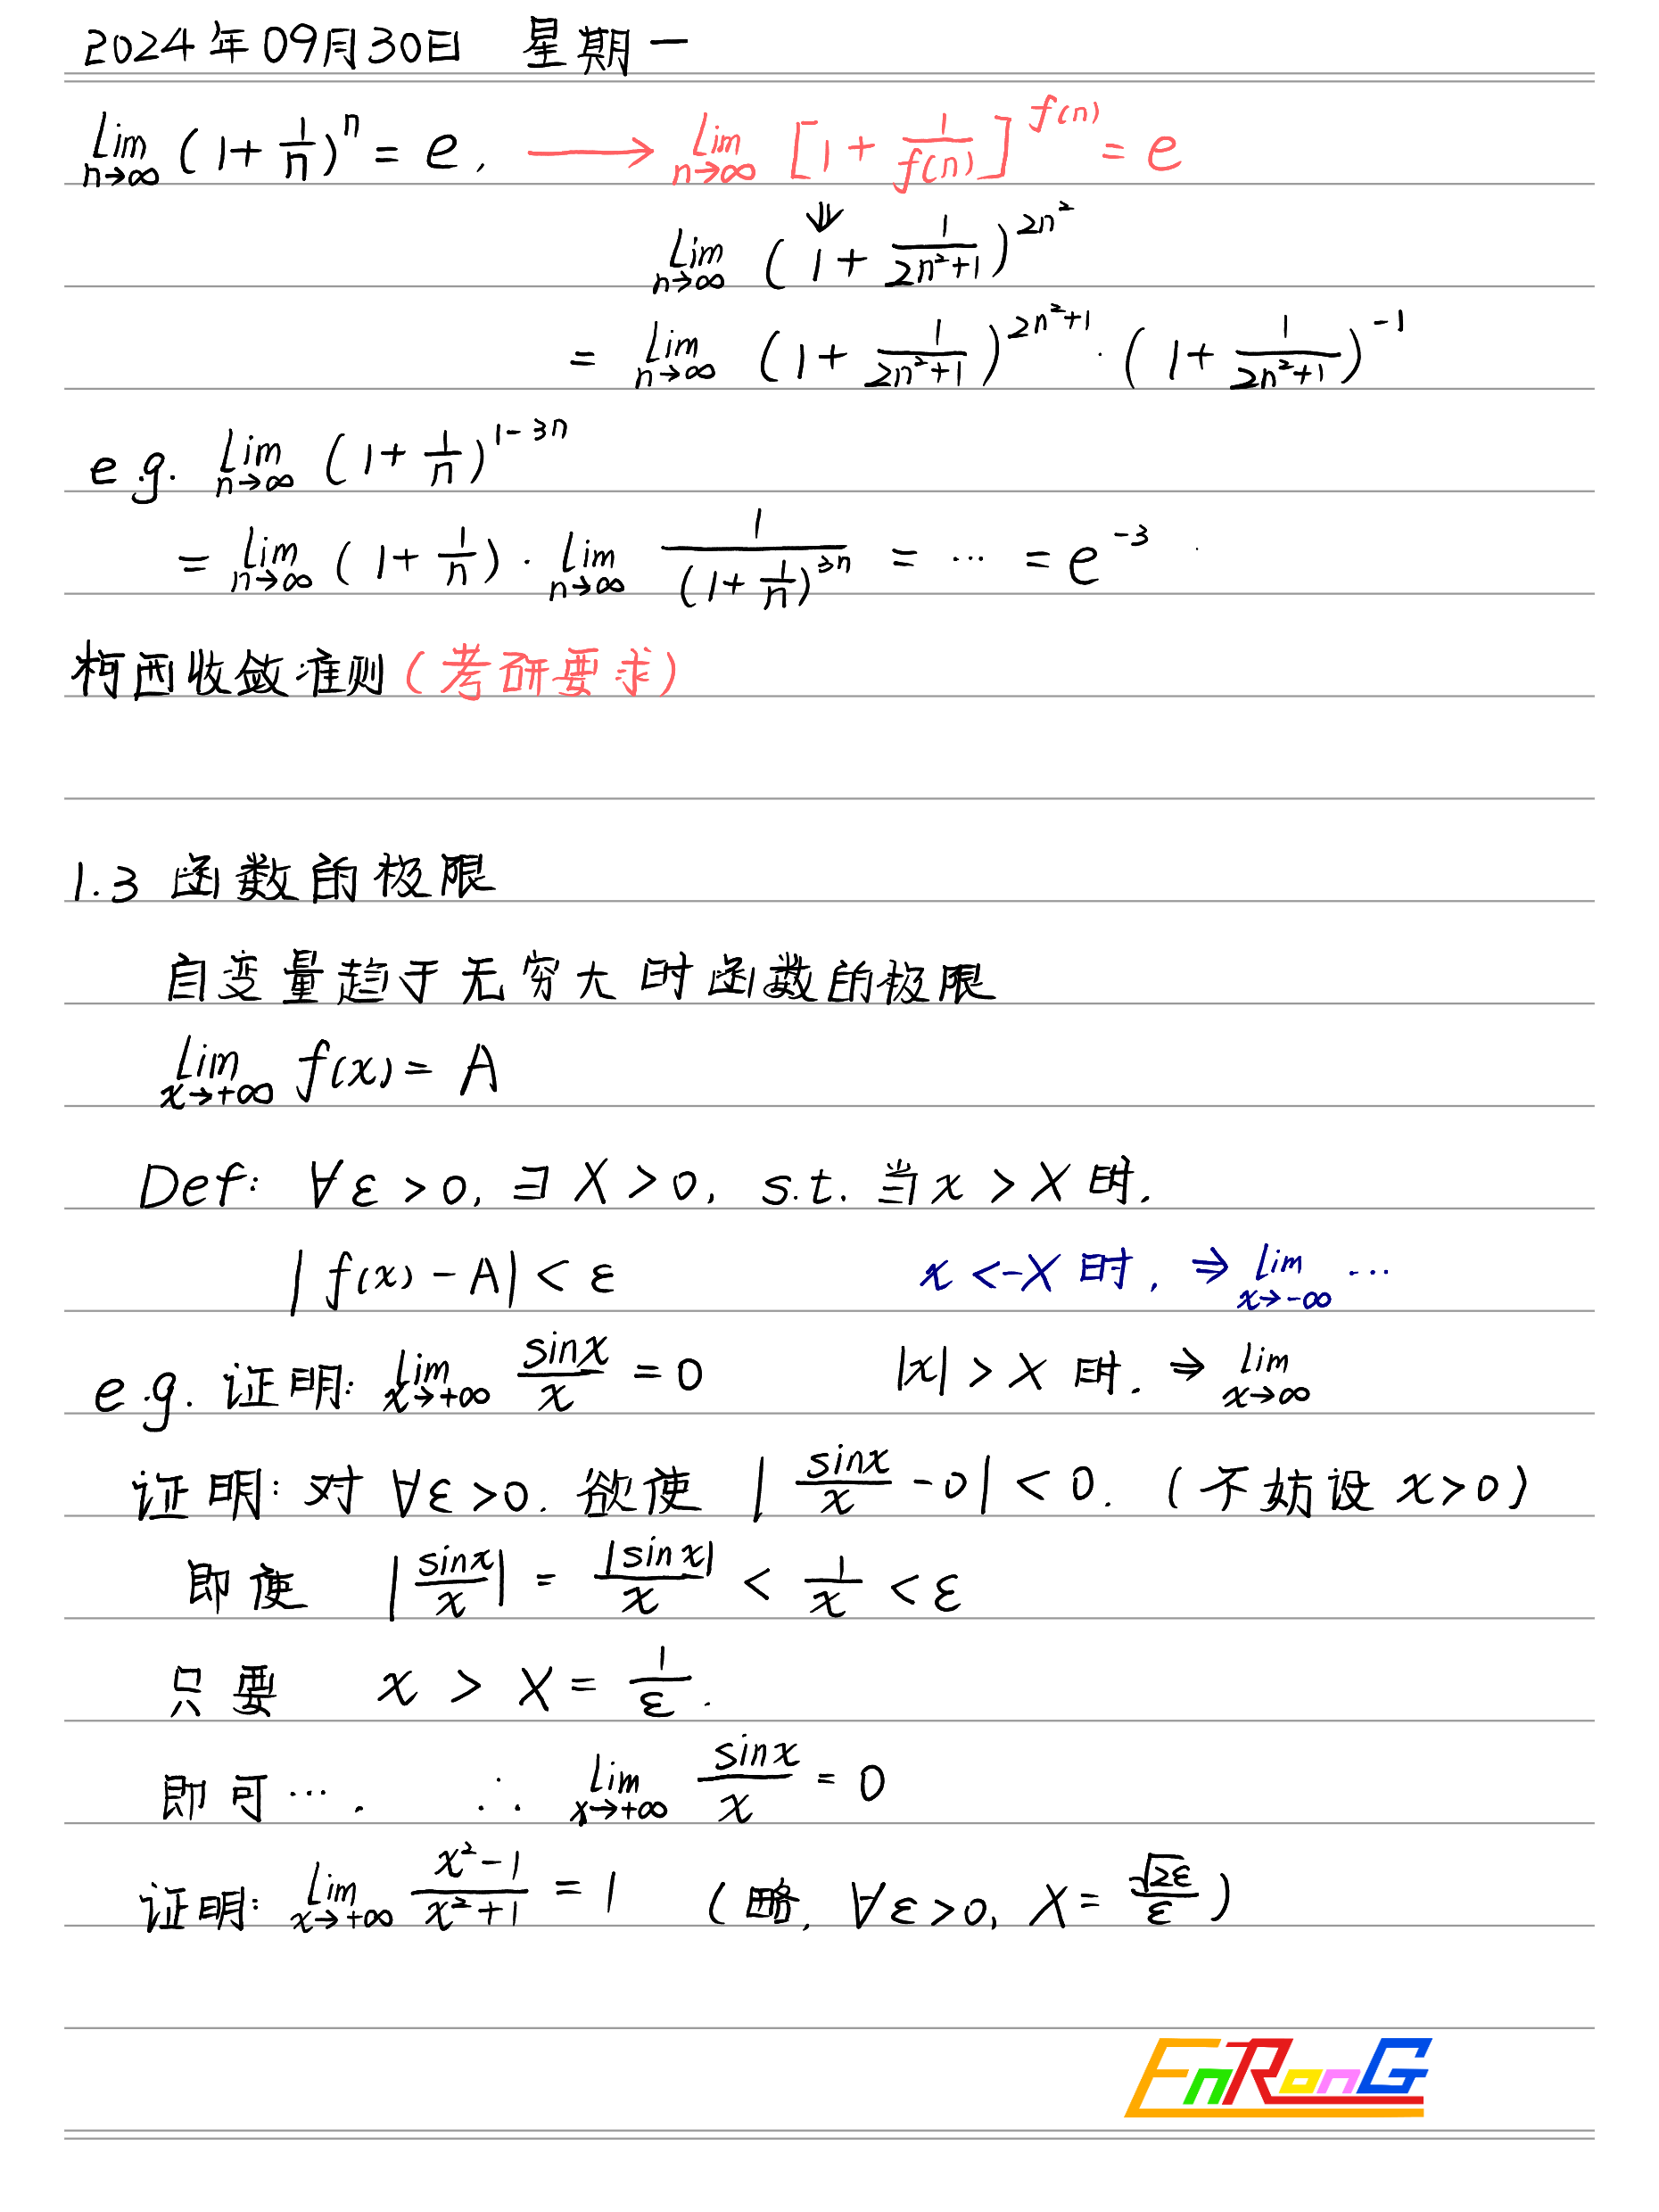 2024年09月30日 星期一
lim n→∞ (1+1/n)^n = e, ⟶ lim n→∞ [1+1/f(n)]^f(n) = e
⇓
lim n→∞ (1+1/(2n²+1))^(2n²)
= lim n→∞ (1+1/(2n²+1))^(2n²+1) · (1+1/(2n²+1))^(-1)
e.g. lim n→∞ (1+1/n)^(1-3n)
= lim n→∞ (1+1/n) · lim n→∞ 1/(1+1/n)^(3n) = ⋯ = e^(-3).
柯西收敛准则(考研要求)
1.3 函数的极限
自变量趋于无穷大时函数的极限
lim x→+∞ f(x) = A
Def: ∀ε>0, ∃X>0, s.t. 当x>X时,
|f(x)-A|<ε x<-X时, ⇒ lim x→-∞ ⋯
e.g. 证明: lim x→+∞ sinx/x = 0 |x|>X时. ⇒ lim x→∞
证明: 对∀ε>0. 欲使 |sinx/x - 0| < 0. (不妨设x>0)
即使 |sinx/x| = |sinx|/x < 1/x < ε
只要 x > X = 1/ε.
即可⋯. ∴ lim x→+∞ sinx/x = 0
证明: lim x→+∞ (x²-1)/(x²+1) = 1 (略, ∀ε>0, X = √(2ε)/ε)
EnRonG